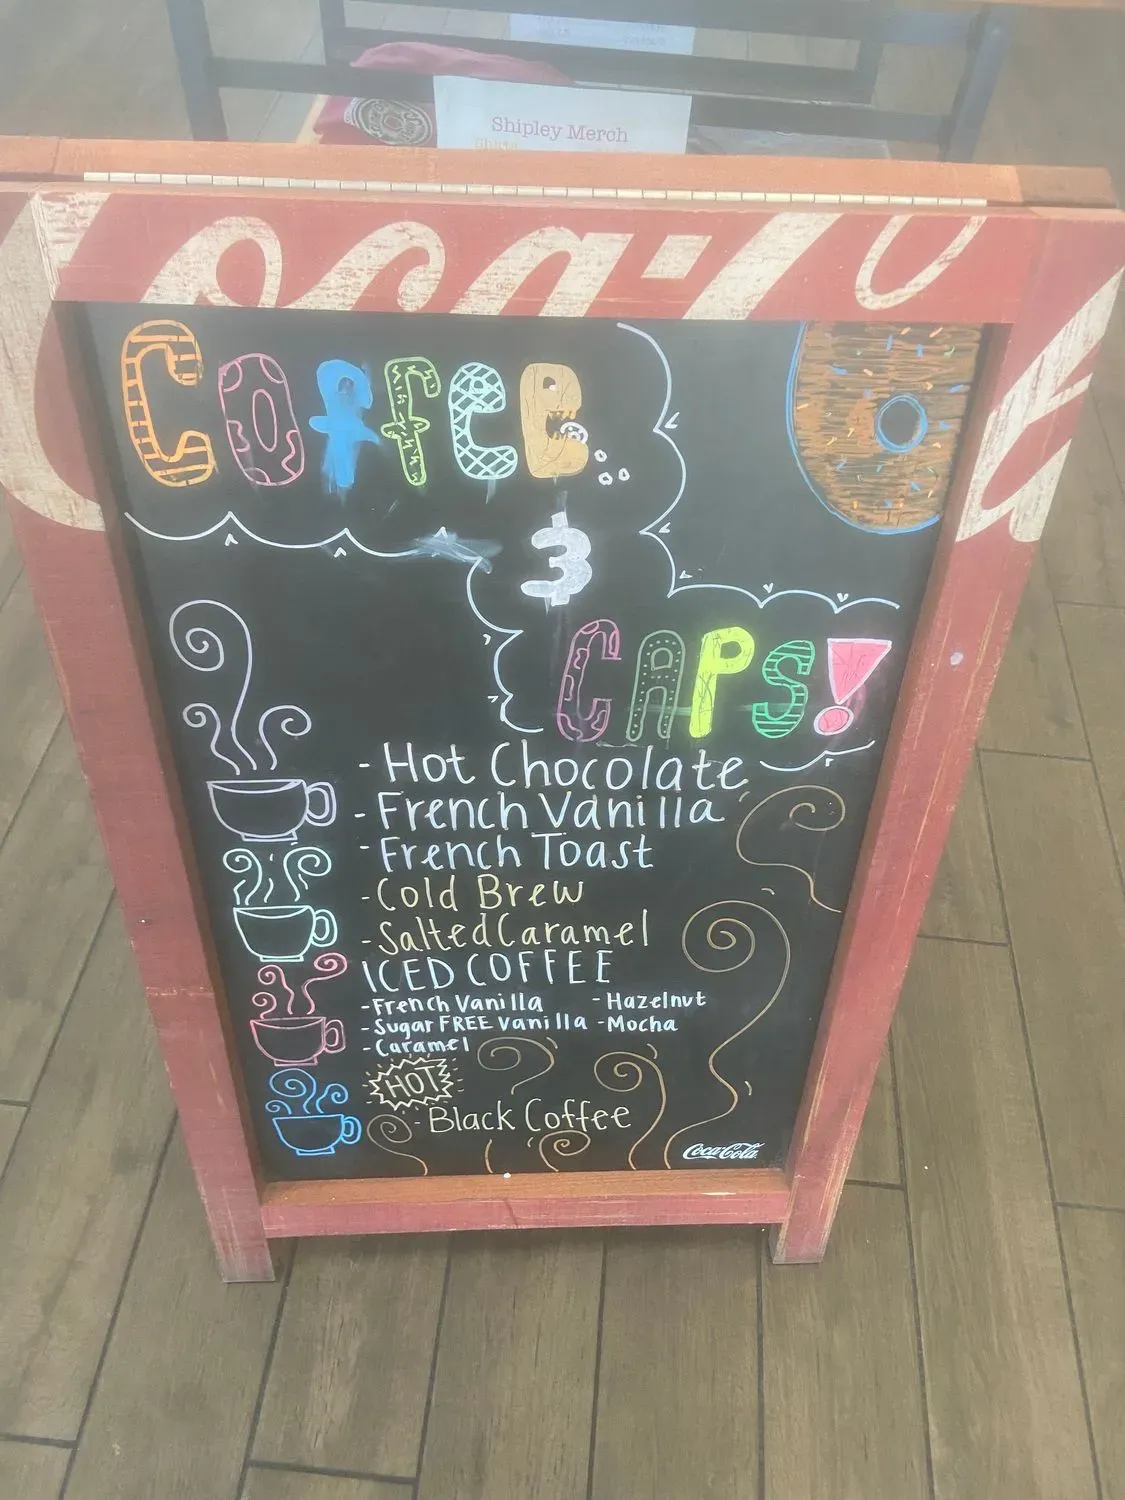 Shipley Merch
Coca-Cola
COffEE
&
CAPS!
- Hot Chocolate
- French Vanilla
- French Toast
- Cold Brew
- Salted Caramel
ICED COFFEE
- French Vanilla - Hazelnut
- Sugar FREE Vanilla - Mocha
- Caramel
HOT
- Black Coffee
Coca-Cola